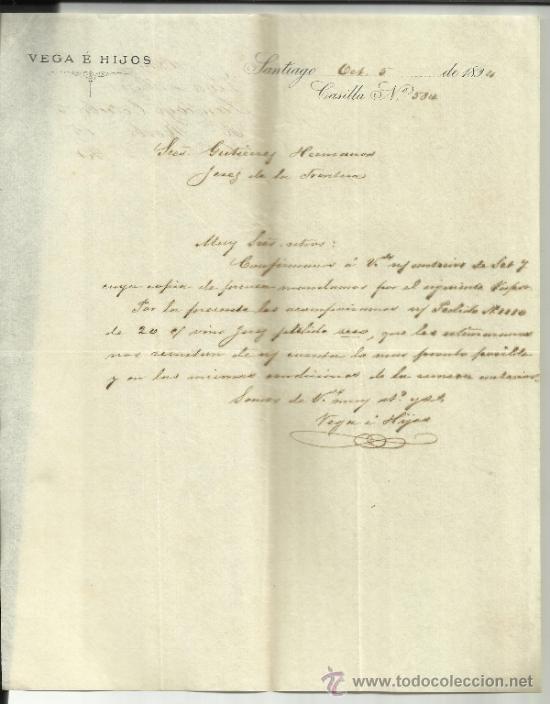 VEGA É HIJOS
Santiago Oct. 5 de 1894
Casilla Nº 584
Sres. Gutierrez Hermanos
Jerez de la Frontera
Muy Sres. ntros:
Confirmamos á V.des n/ anterior de Set 7
cuya copia de prensa mandamos por el siguiente Vapor.
Por la presente les acompañamos n/ Pedido Nº 1110
de 20 c/ vino Jerez pálido seco, que les estimaremos
nos remitan de n/ cuenta lo mas pronto posible
y en las mismas condiciones de la remesa anterior.
Somos de V.des muy at.os y ss.
Vega é Hijos
www.todocoleccion.net